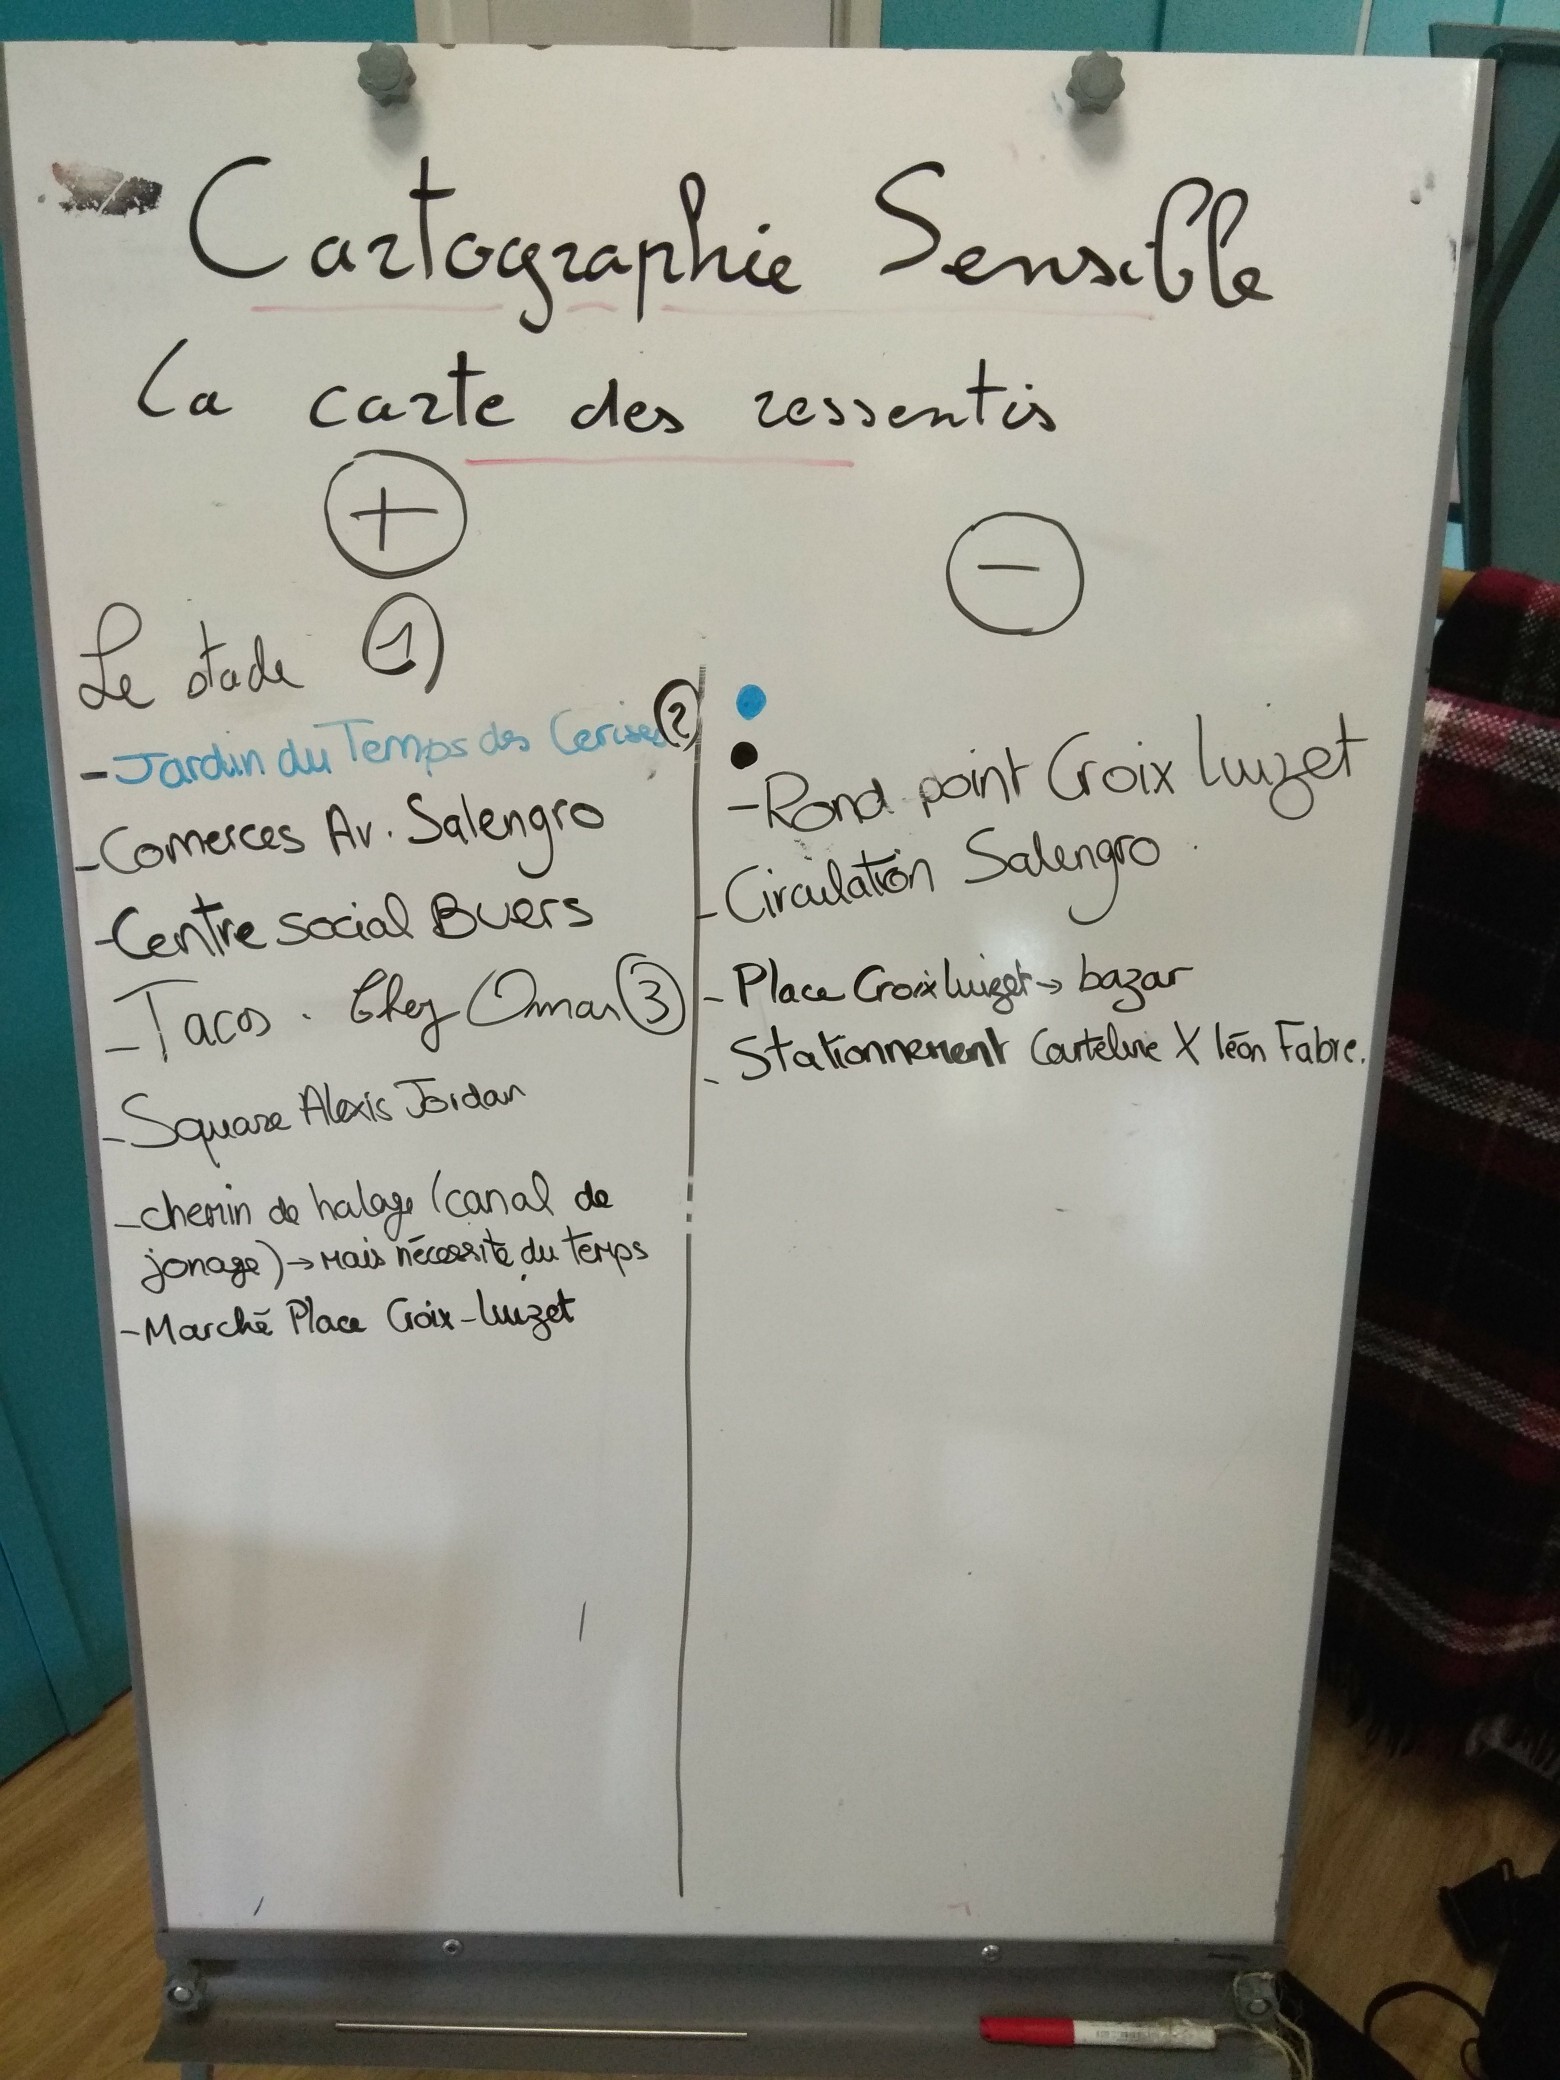 Cartographie Sensible
La carte des ressentis
+
Le stade 1
- Jardin du Temps des Cerises 2
- Comerces Av. Salengro
- Centre social Buers
- Tacos. Chez Omar 3
- Square Alexis Jordan
- chemin de halage (canal de
jonage) → mais nécessite du temps
- Marché Place Croix-Luizet
-
- Rond point Croix Luizet
- Circulation Salengro
- Place Croix Luizet → bazar
- Stationnement Courteline X léon Fabre.